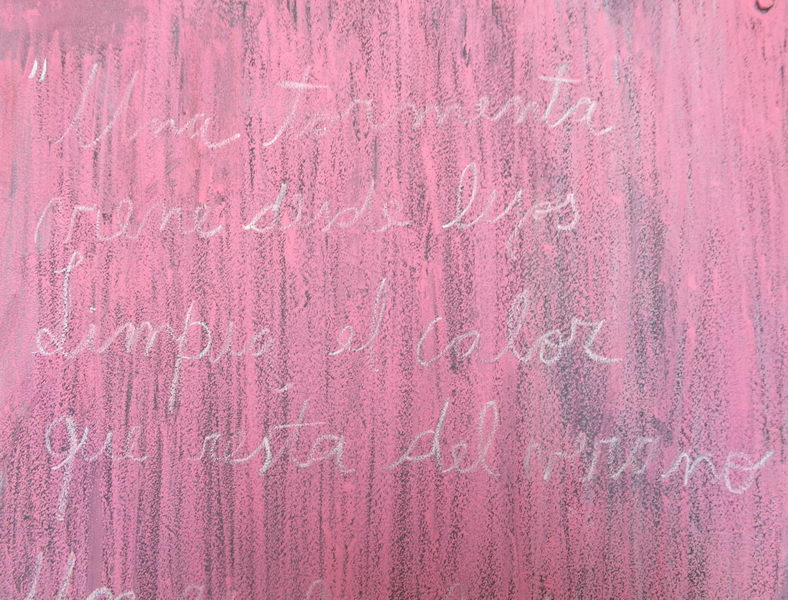 "Una tormenta
viene desde lejos
Limpia el calor
que resta del verano